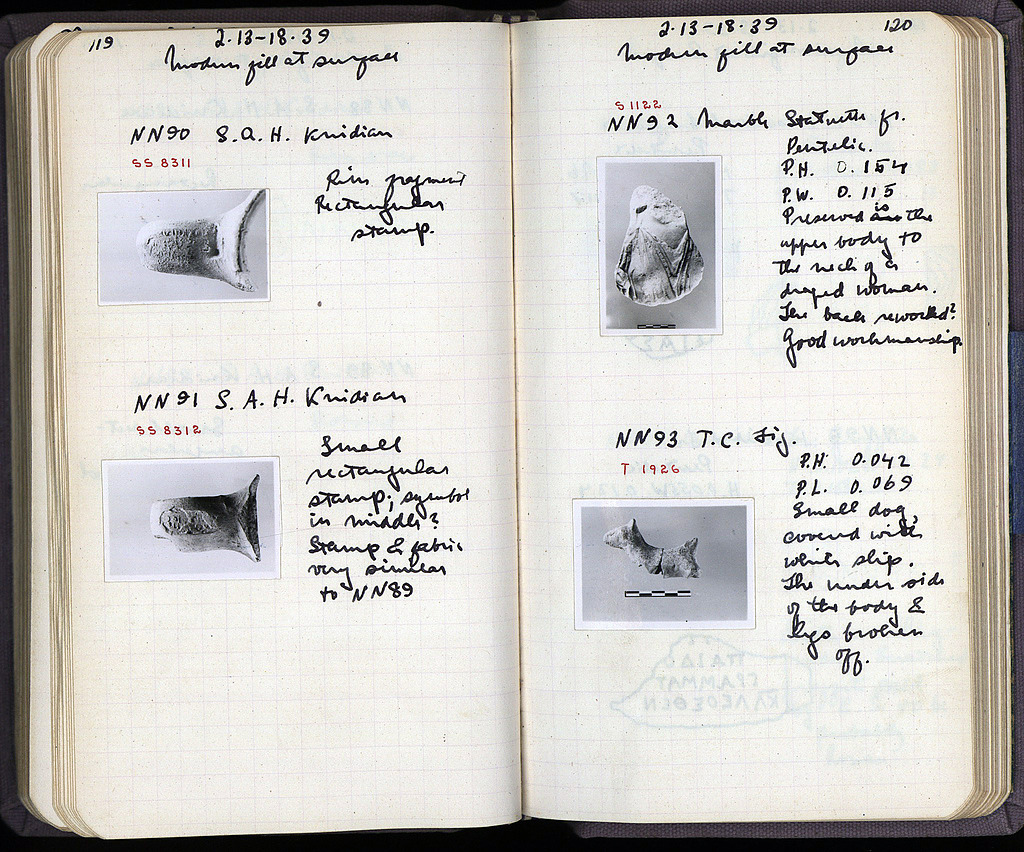 119
2-13-18-39
Modern fill at surface
NN90 S.A.H. Knidian
SS 8311
Rim fragment
Rectangular
stamp.
NN91 S.A.H. Knidian
SS 8312
Small
rectangular
stamp; symbol
in middle?
Stamp & fabric
very similar
to NN89
2-13-18-39
120
Modern fill at surface
S 1122
NN92 Marble Statuette fr.
Pentelic.
P.H. 0.154
P.W. 0.115
Preserved is the
upper body to
the neck of a
draped woman.
The back reworked?
Good workmanship.
NN93 T.C. Fig.
T 1926
P.H. 0.042
P.L. 0.069
Small dog,
covered with
white slip.
The under side
of the body &
legs broken
off.